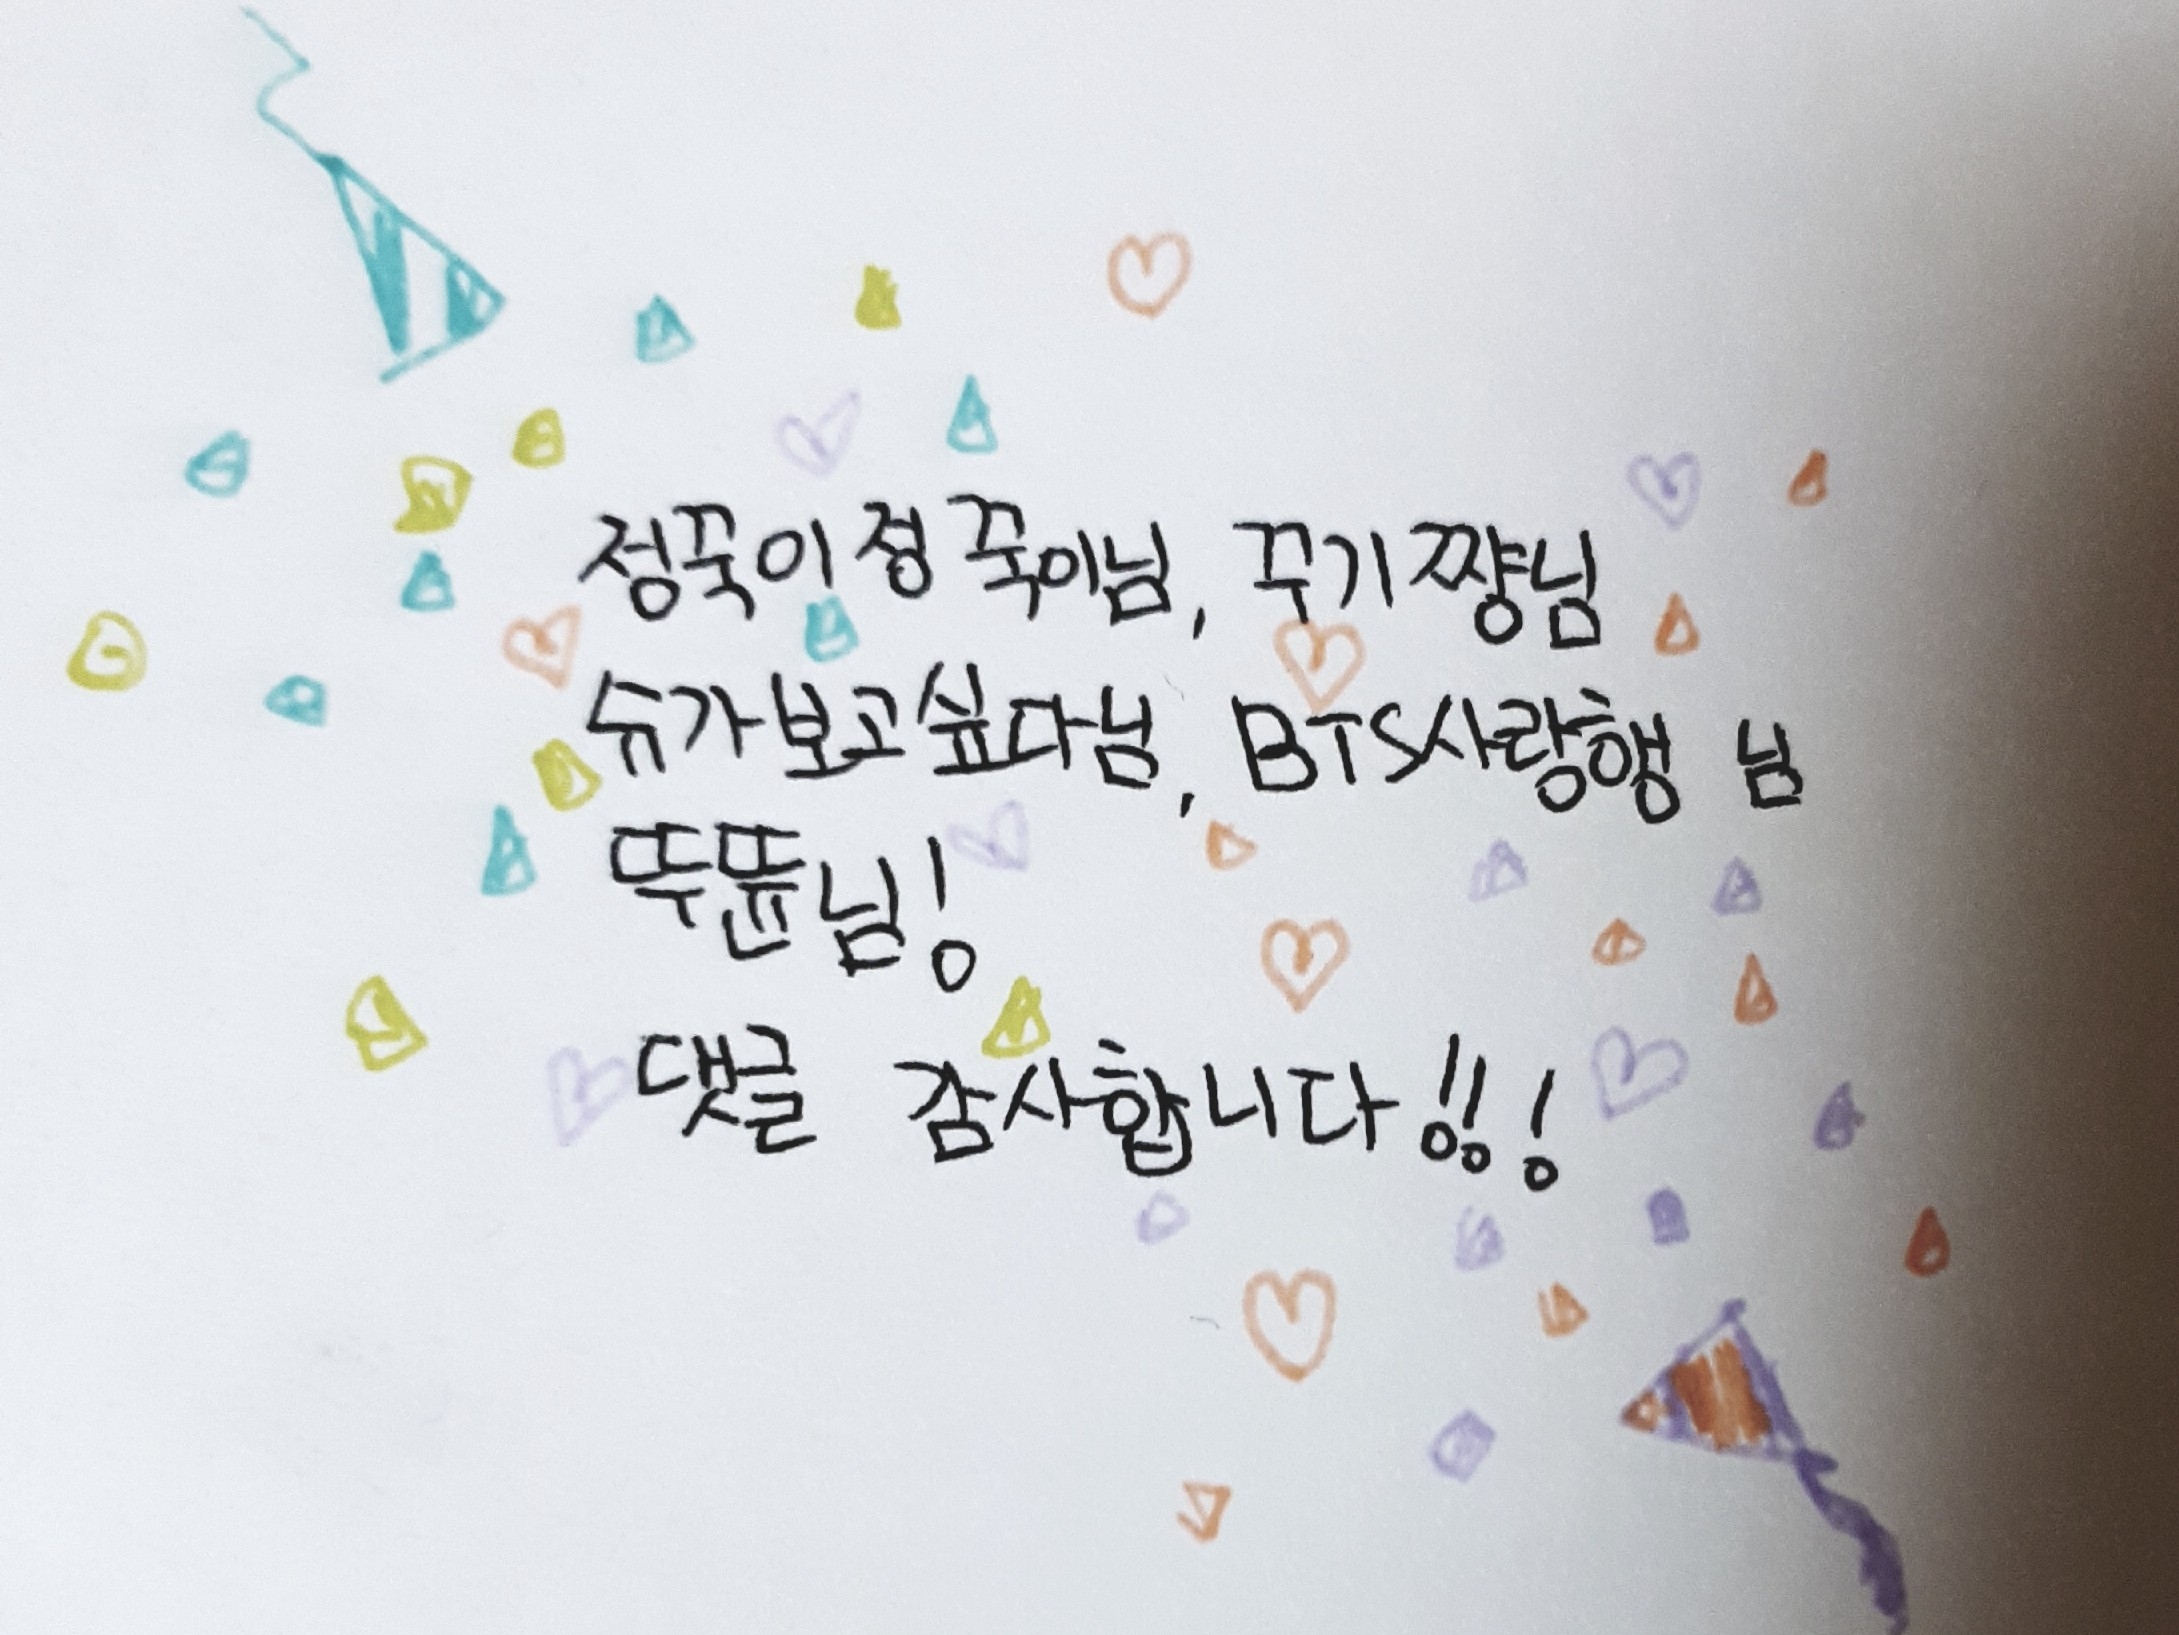 정꾹이정꾹이님, 꾸기쨩님
슈가보고싶다님, BTS사랑행 님
뚜뜐님!
댓글 감사합니다!!!